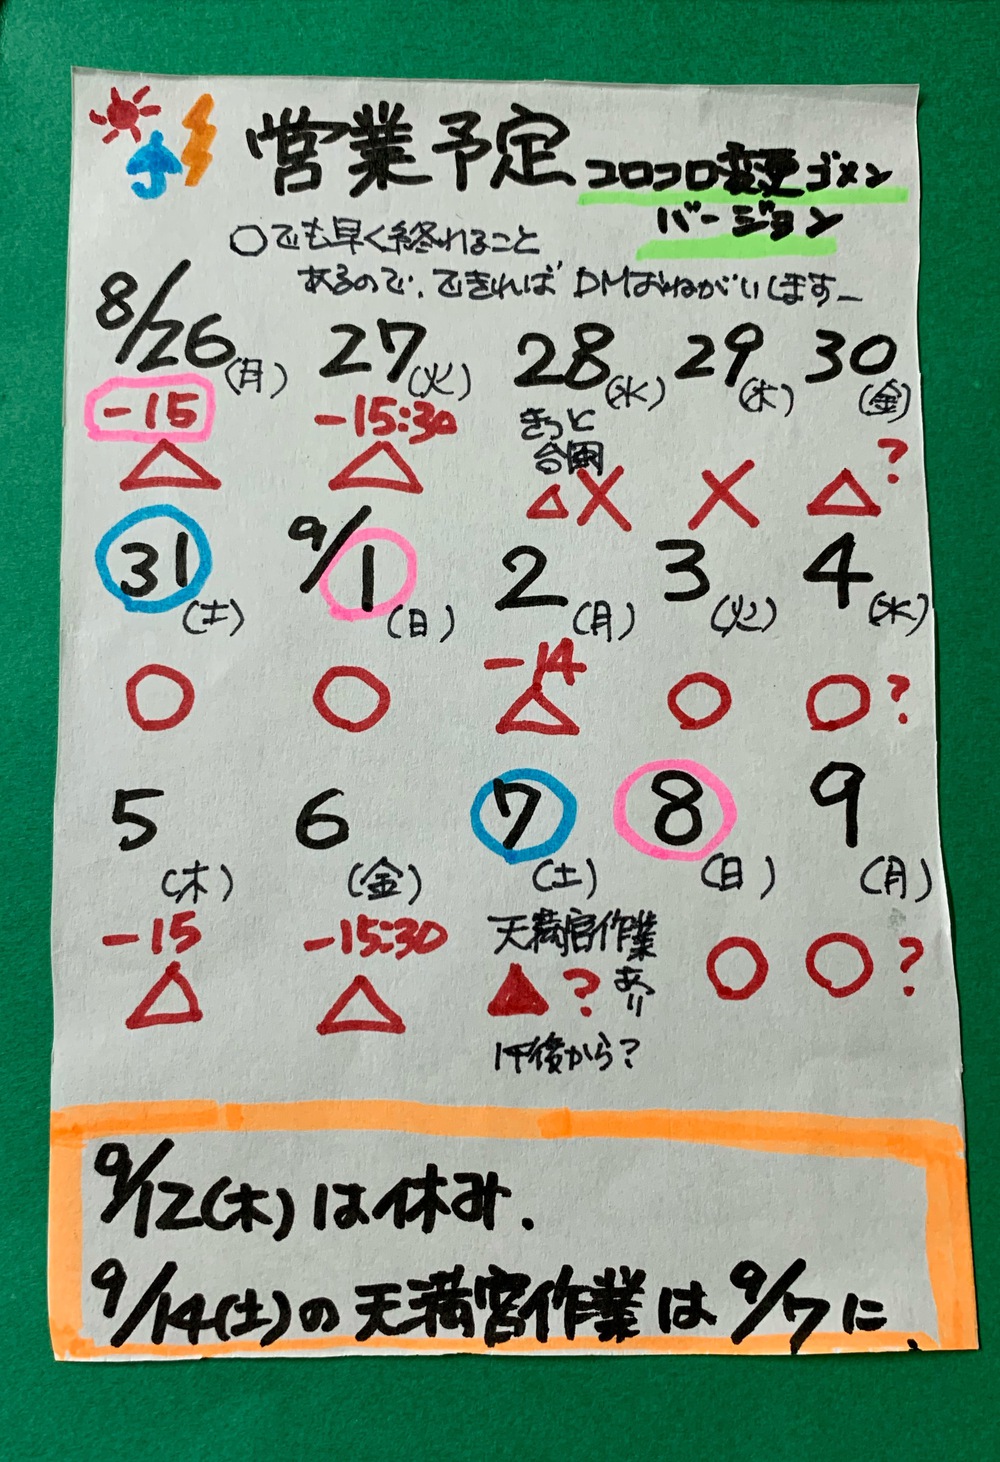 営業予定 コロコロ変更ゴメン
バージョン
○でも早く終れること
あるので、できれば DMおねがいします_
8/26(月) 27(火) 28(水) 29(木) 30(金)
-15 -15:30 きっと
台風
△ △ △× × △?
31(土) 9/1(日) 2(月) 3(火) 4(水)
-14
○ ○ △ ○ ○?
5(木) 6(金) 7(土) 8(日) 9(月)
-15 -15:30 天満宮作業
あり
△ △ ▲? ○ ○?
午後から?
9/12(木)は休み.
9/14(土)の天満宮作業は9/7に.